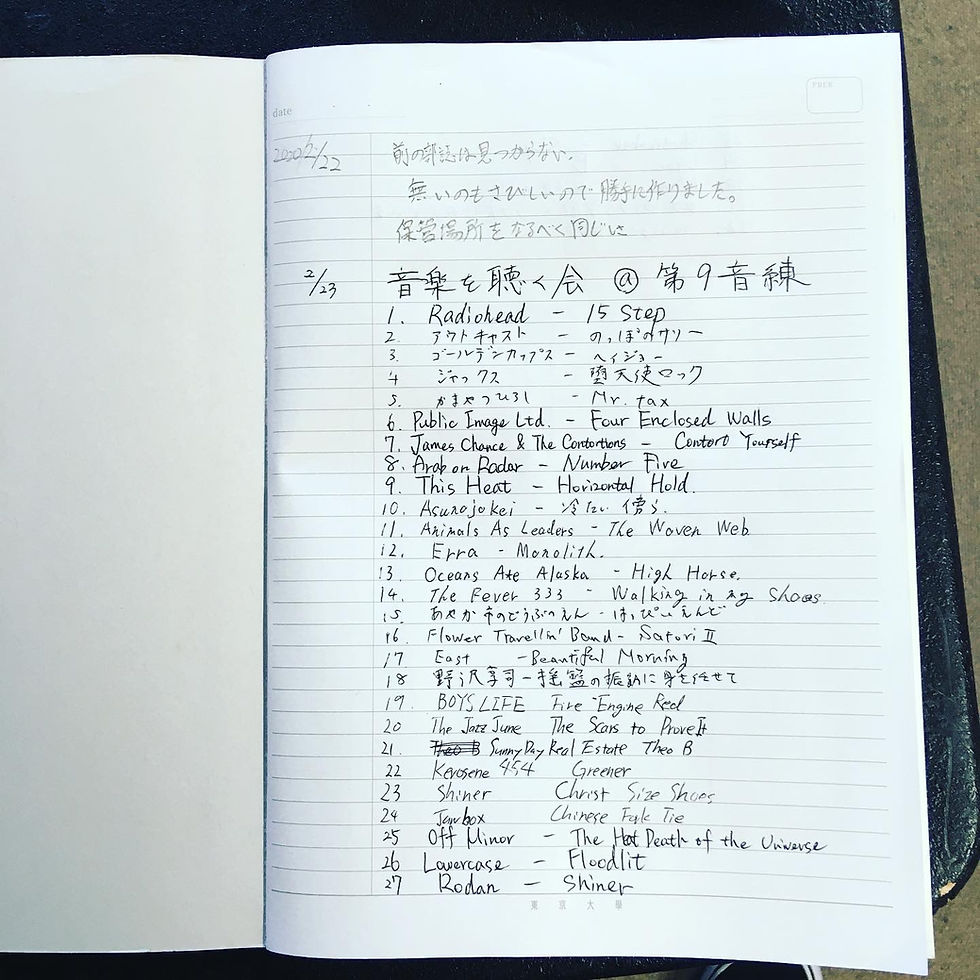 date
FREE
2020/2/22 前の部誌は見つからない、
無いのもさびしいので勝手に作りました。
保管場所をなるべく同じに
2/23 音楽を聴く会 @ 第9音練
1. Radiohead - 15 Step
2. アウトキャスト - のっぽのサリー
3. ゴールデンカップス - ヘイジョー
4 ジャックス - 堕天使ロック
5. かまやつひろし - Mr. tax
6. Public Image Ltd. - Four Enclosed Walls
7. James Chance & The Contortions - Contort Yourself
8. Arab on Radar - Number Five
9. This Heat - Horizontal Hold.
10. Asunojokei - 冷たい傍ら.
11. Animals As Leaders - The Woven Web
12. Erra - Monolith.
13. Oceans Ate Alaska - High Horse.
14. The Fever 333 - Walking in my Shoes
15. あやか市のどうぶつえん - はっぴいえんど
16. Flower Travellin' Band - Satori II
17 East - Beautiful Morning
18 野沢享司 - 揺籃の振動に身を任せて
19. BOYS LIFE Fire Engine Red
20 The Jazz June The Scars to Prove It
21. Sunny Day Real Estate Theo B
22 Kerosene 454 Greener
23 Shiner Christ Size Shoes
24 Jawbox Chinese Fork Tie
25 Off Minor - The Heat Death of the Universe
26 Lowercase - Floodlit
27 Rodan - Shiner
東京大學